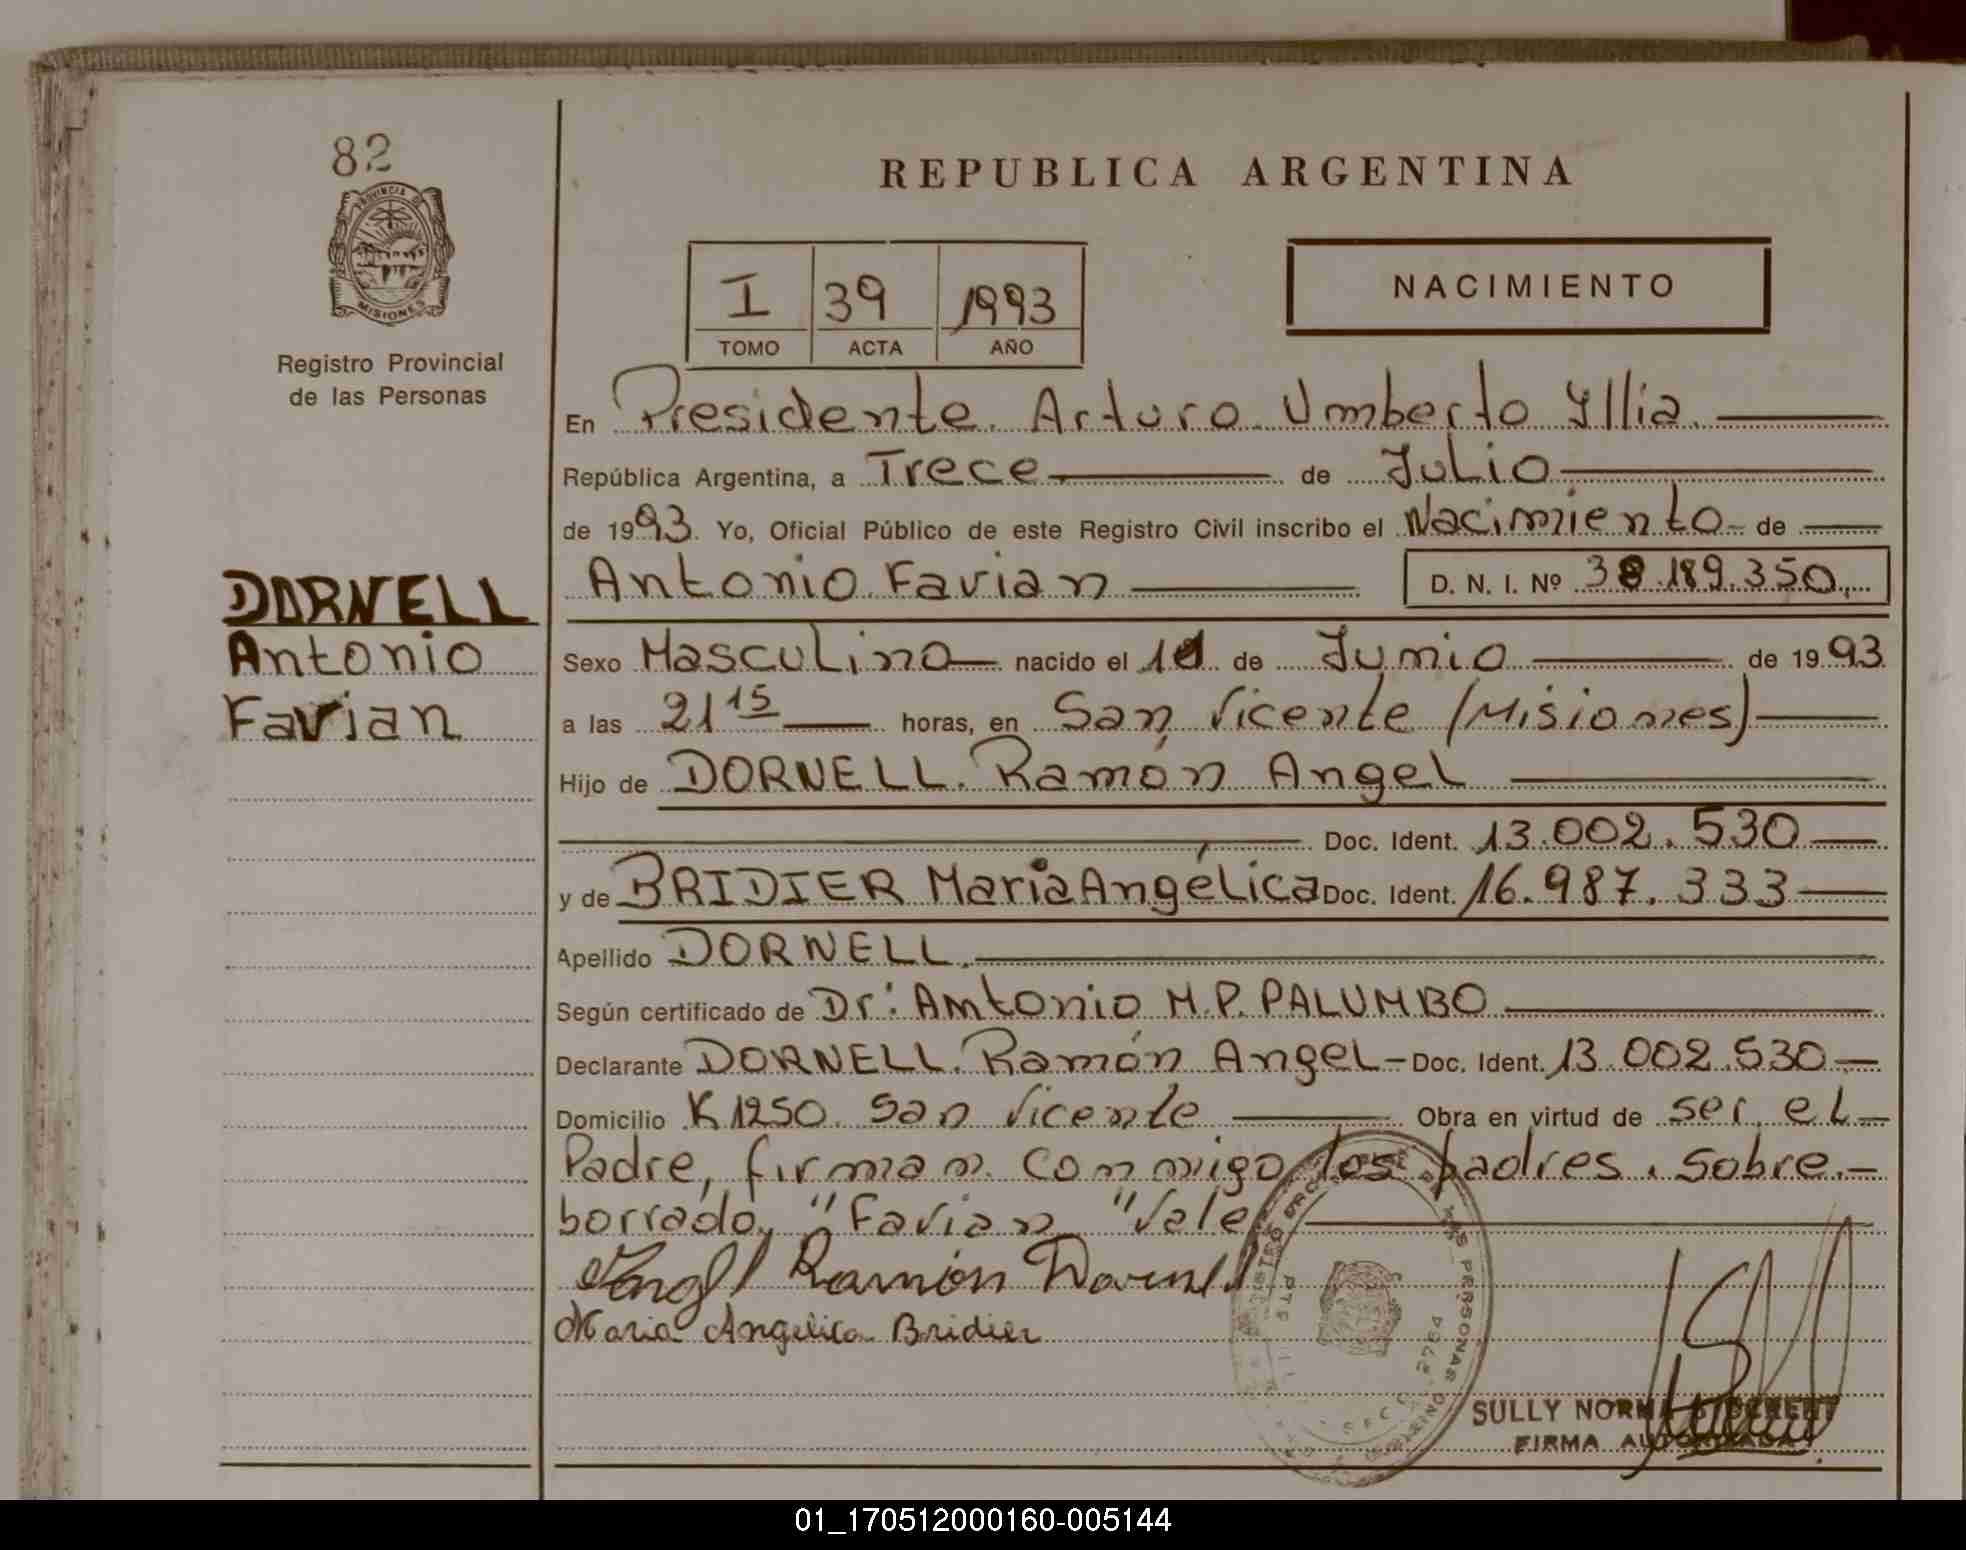 82
PROVINCIA DE
MISIONES
Registro Provincial
de las Personas
REPUBLICA ARGENTINA
I 39 1993
TOMO ACTA AÑO
NACIMIENTO
En Presidente Arturo Umberto Yllia.
República Argentina, a Trece de Julio
de 1993. Yo, Oficial Público de este Registro Civil inscribo el Nacimiento de
Antonio Favian D. N. I. Nº 38.189.350.
DORNELL
Antonio
Favian
Sexo Masculino nacido el de Junio de 1993
a las 21 15 horas, en San Vicente (Misiones)
Hijo de DORNELL. Ramón Angel
Doc. Ident. 13.002.530
y de BRIDIER María Angélica Doc. Ident. 16.987.333
Apellido DORNELL.
Según certificado de Dr: Antonio M.P. PALUMBO
Declarante DORNELL. Ramón Angel - Doc. Ident. 13.002.530
Domicilio K 1250. San Vicente Obra en virtud de ser el
Padre, firman conmigo los padres. Sobre-
borrado, "Favian" Vale
Angel Ramón Dornell
Maria Angelica Bridier
SULLY NORMA
FIRMA AUTORIZADA
01_170512000160-005144